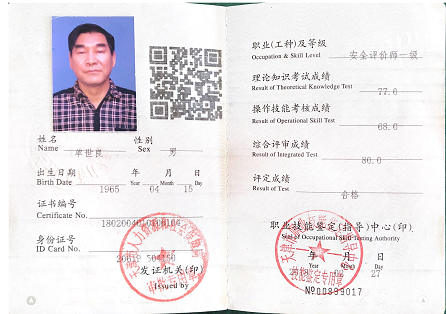 姓名
Name 单世良
性别
Sex 男
出生日期
Birth Date 1965
年
Year 04
月
Month 15
日
Day
证书编号
Certificate No.
身份证号
ID Card No.
发证机关(印)
Issued by
职业(工种)及等级
Occupation & Skill Level 安全评价师一级
理论知识考试成绩
Result of Theoretical Knowledge Test 77.0
操作技能考核成绩
Result of Operational Skill Test 68.0
综合评审成绩
Result of Integrated Test 80.0
评定成绩
Result of Test 合格
职业技能鉴定(指导)中心(印)
Seal of Occupational Skill Testing Authority
年 月 日
Year Month Day
27